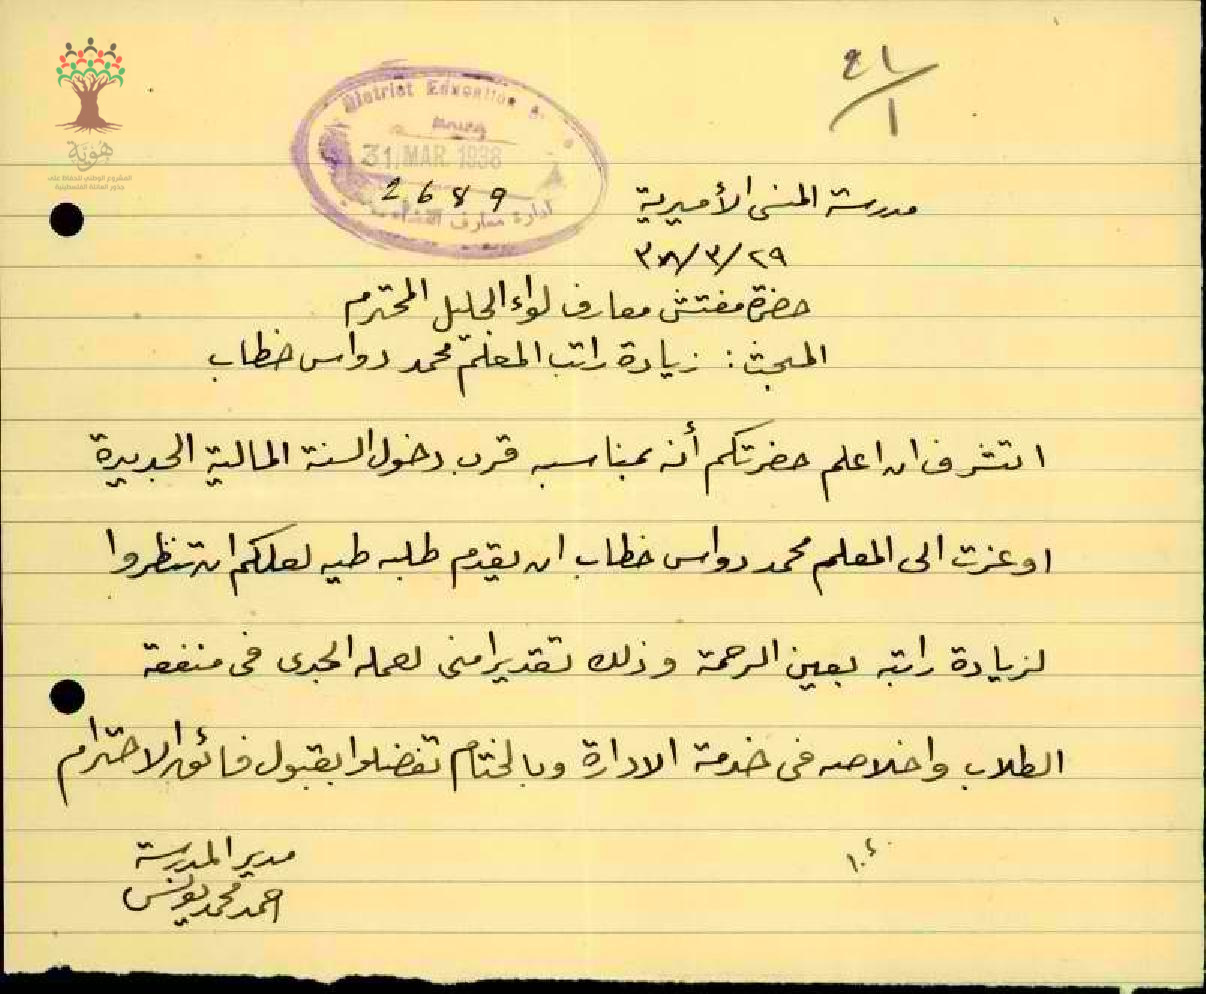 ٤٦/١
هوية
المشروع الوطني للحفاظ على
جذور العائلة الفلسطينية
District Education
31 MAR. 1938
2689
ادارة معارف
مدرسة المنسي الأميرية
٢٩/٣/٣٨
حضرة مفتش معارف لواء الجليل المحترم
المبحث: زيادة راتب المعلم محمد دواس خطاب
اتشرف ان اعلم حضرتكم أنه بمناسبه قرب دخول السنة المالية الجديدة
اوعزت الى المعلم محمد دواس خطاب ان يقدم طلبه طيه لعلكم ان تنظروا
لزيادة راتبه بعين الرحمة وذلك تقديرا منى لعمله الجدى فى منفعة
الطلاب واخلاصه فى خدمة الادارة وبالختام تفضلوا بقبول فائق الاحترام
مدير المدرسة
احمد محمد يونس